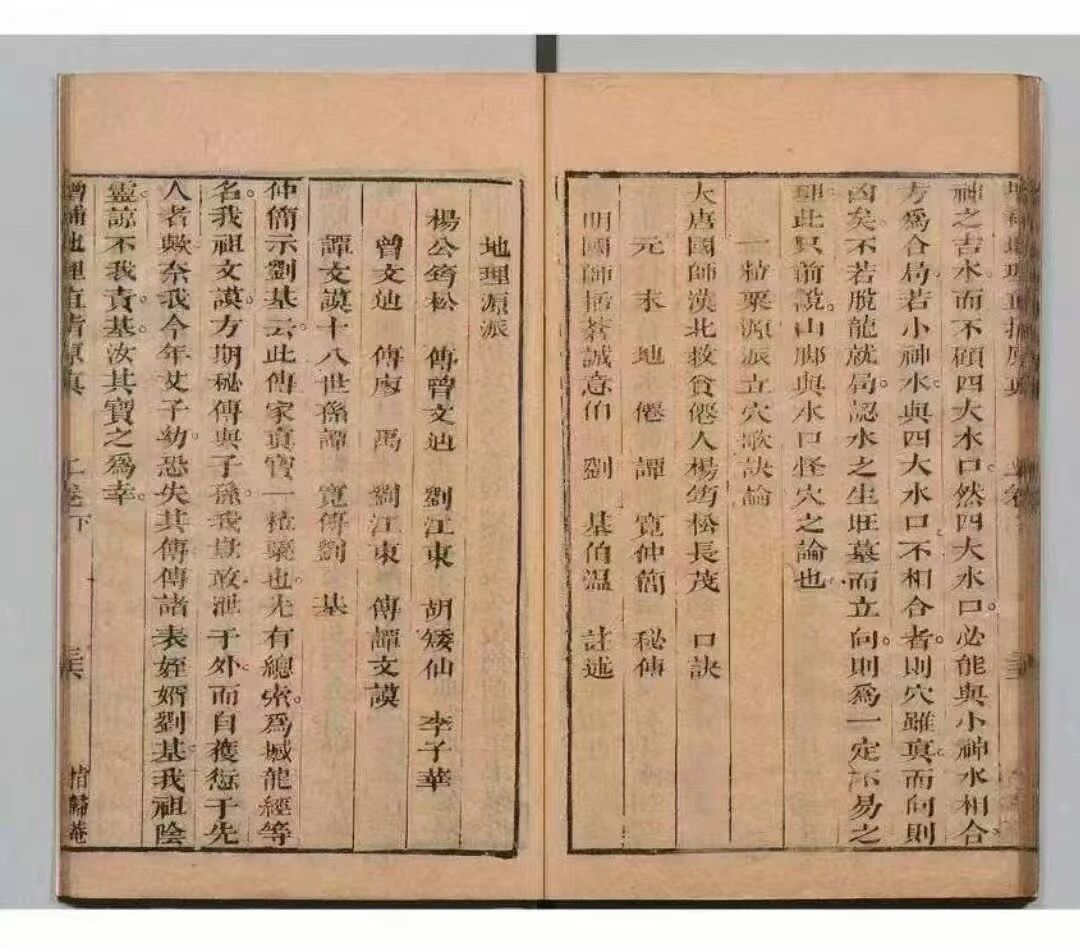 神之吉水而不顧四大水口然四大水口必能與小神水相合
方為合局若小神水與四大水口不相合者則穴雖真而向則
凶矣不若脫龍就局認水之生旺墓而立向則為一定不易之
理此只前說山腳與水口怪穴之論也
一粒粟源派立穴歌訣論
大唐國師漢北救貧僊人楊筠松長茂 口訣
元末地僊譚寬仲簡秘傳
明國師括蒼誠意伯劉基伯溫 註述
地理源派
楊公筠松 傳曾文辿 劉江東 胡矮仙 李子華
曾文辿 傳廖禹 劉江東 傳譚文謨
譚文謨十八世孫譚寬傳劉基
仲簡示劉基云此傳家真寶一粒粟也先有總索為撼龍經等
名我祖文謨方期秘傳與子孫我豈敢泄于外而自獲愆于先
人者歟奈我今年艾子幼恐失其傳傳諸表姪婿劉基我祖陰
靈諒不我責基汝其寶之為幸
增補地理直指原真 二卷下 三六 指歸菴